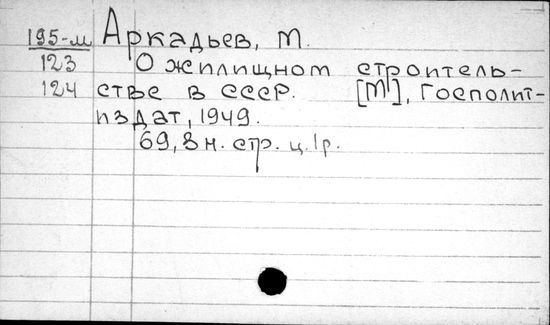 195-м Аркадьев, М.
123 О жилищном строитель-
124 стве в СССР. [М], Госполит-
издат, 1949.
69, 3 н. стр. ц. 1р.